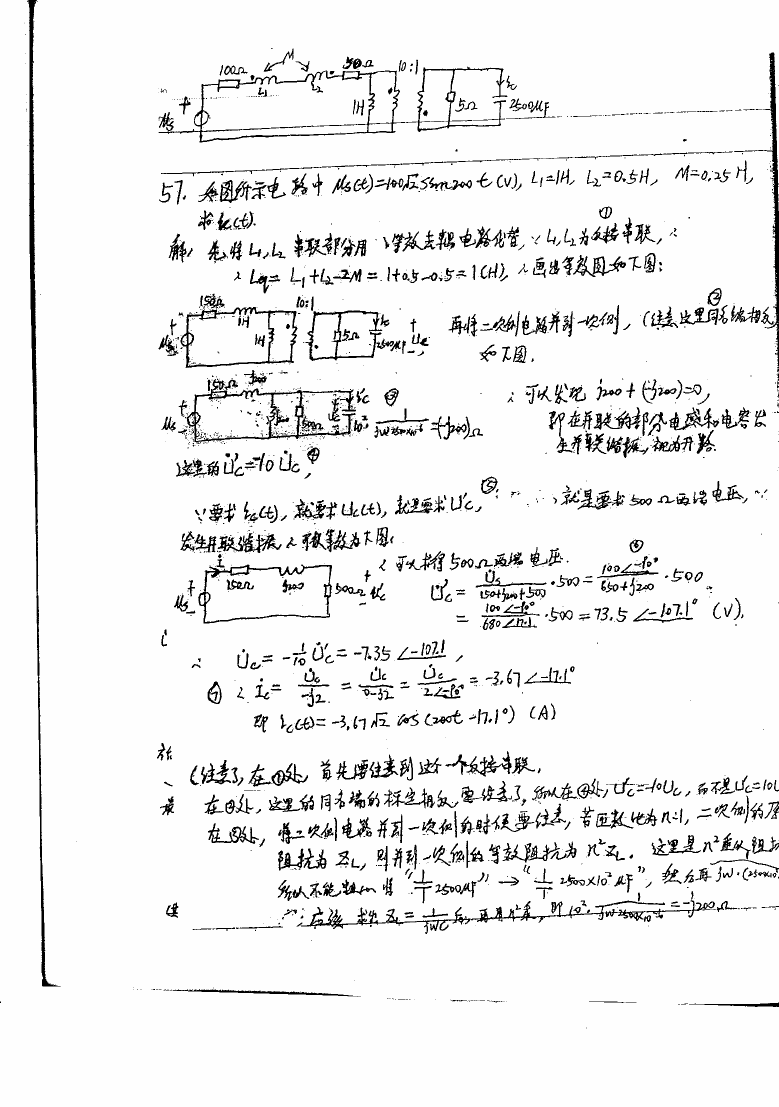 100Ω M 50Ω 10:1
L₁ L₂ 1H 5Ω 2500μF
57. 如图所示电路中 Us(t)=100√2 Sin200t (V), L₁=1H, L₂=0.5H, M=0.25H,
求ic(t).
解: 先将L₁,L₂串联部分用等效去耦电路代替, ∵L₁,L₂为反接串联, ①
∴Leq=L₁+L₂-2M=1+0.5-0.5=1(H), ∴画出等效图如下图:
150Ω 1H 10:1
1H 5Ω 2500μF
再将二次侧电路并到一次侧, (注意这里同名端相反) ②
如下图.
150Ω j200 500Ω
③ 1/(jw2500×10⁻⁶) =(-j200)Ω
∴可以发现 j200+(-j200)=0,
即在并联的部分电感和电容发
生并联谐振, 视为开路.
这里的U̇'c=-10U̇c, ④
∵要求ic(t), 就要求Uc(t), 就是要求U'c, ⑤ 就是要求500Ω两端电压, ∵
发生并联谐振, ∴可等效为下图:
150Ω j200 500Ω U'c
∴可以求得500Ω两端电压.
⑥
U̇'c= U̇s/(150+j200+500) ·500= 100∠-90°/(650+j200) ·500
= 100∠-90°/(680∠17.1°) ·500=73.5∠-107.1° (V).
∴ U̇c=-1/10 U̇'c=-7.35∠-107.1,
⑦ ∴ İc= U̇c/(-j2) = U̇c/(0-j2) = U̇c/(2∠-90°) =-3.67∠-17.1°
即 ic(t)=-3.67√2 cos(200t-17.1°) (A)
(注意了, 在①处, 首先要注意到这个反接串联,
在②处, 这里的同名端的标定相反, 要注意了, 所以在④处, U'c=-10Uc, 而不是U'c=10U
在③处, 将二次侧电路并到一次侧的时候要注意, 若匝数比为n:1, 二次侧的原
阻抗为ZL, 则并到一次侧的等效阻抗为n²ZL. 这里是n²乘以阻抗
所以不能 将“2500μF”→“2500×10²μF”, 然后再 jw·(2500×10
应该求出ZL=1/(jwC)后, 再乘, 即10²·1/(jw2500×10⁻⁶)=-j200Ω